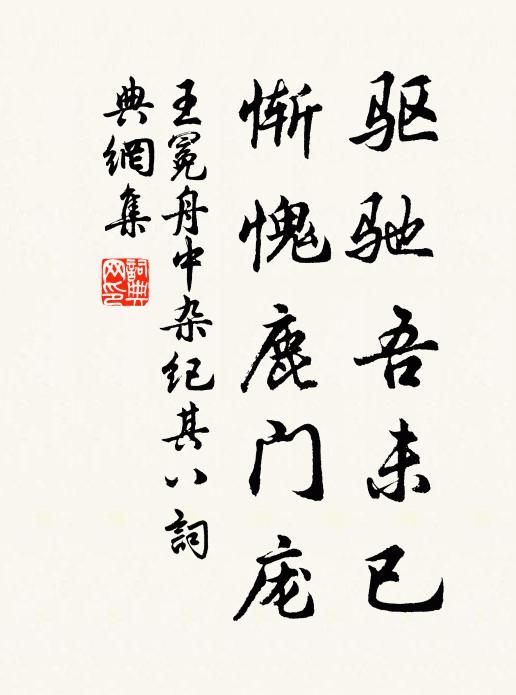 驱驰吾未已
惭愧鹿门庞
王冕舟中杂纪其八詞
典網集
詞典网印